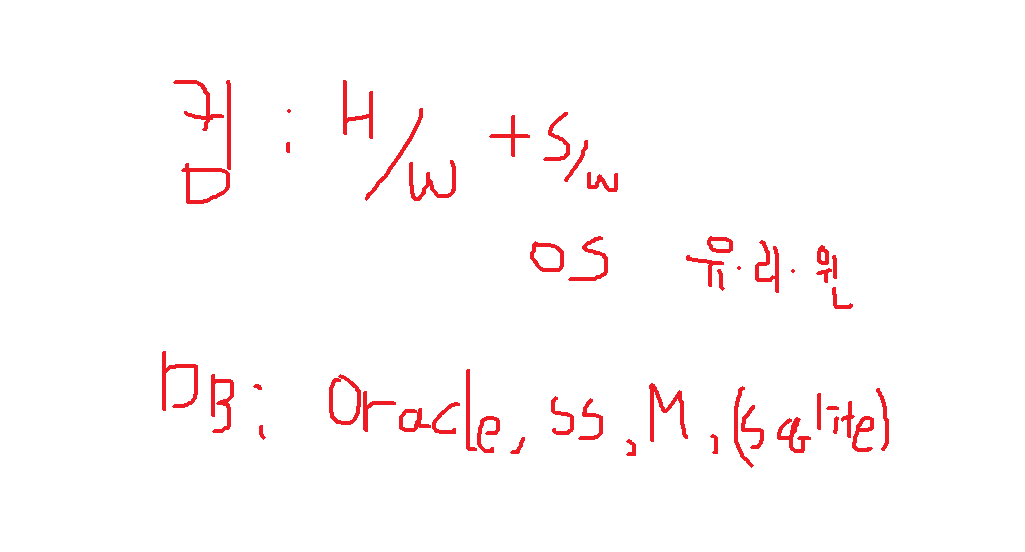 컴 : H/W + S/W
OS 유·리·윈
DB : Oracle, SS, M, (Sqlite)